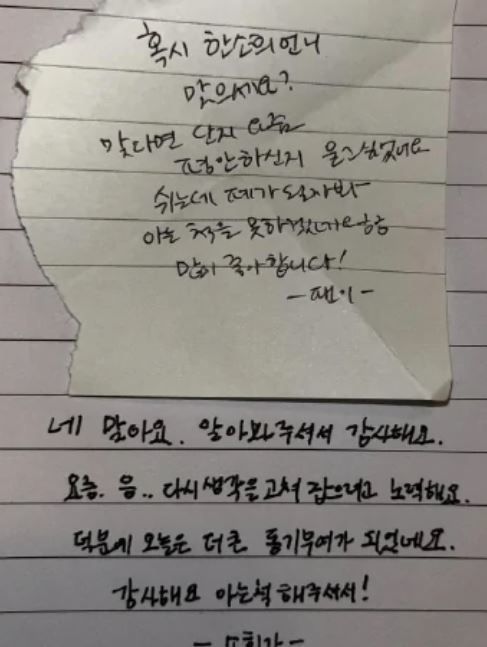 혹시 한소희언니
맞으세요?
맞다면 단지 요즘
평안하신지 묻고싶었어요
쉬는데 폐가 될까봐
아는 척을 못하겠네요 흠흠
많이 좋아합니다!
- 팬이 -
네 맞아요. 알아봐주셔서 감사해요.
요즘. 음.. 다시 생각을 고쳐 잡으려고 노력해요.
덕분에 오늘은 더 큰 동기부여가 되었네요.
감사해요 아는척 해주셔서!
- 소희가 -